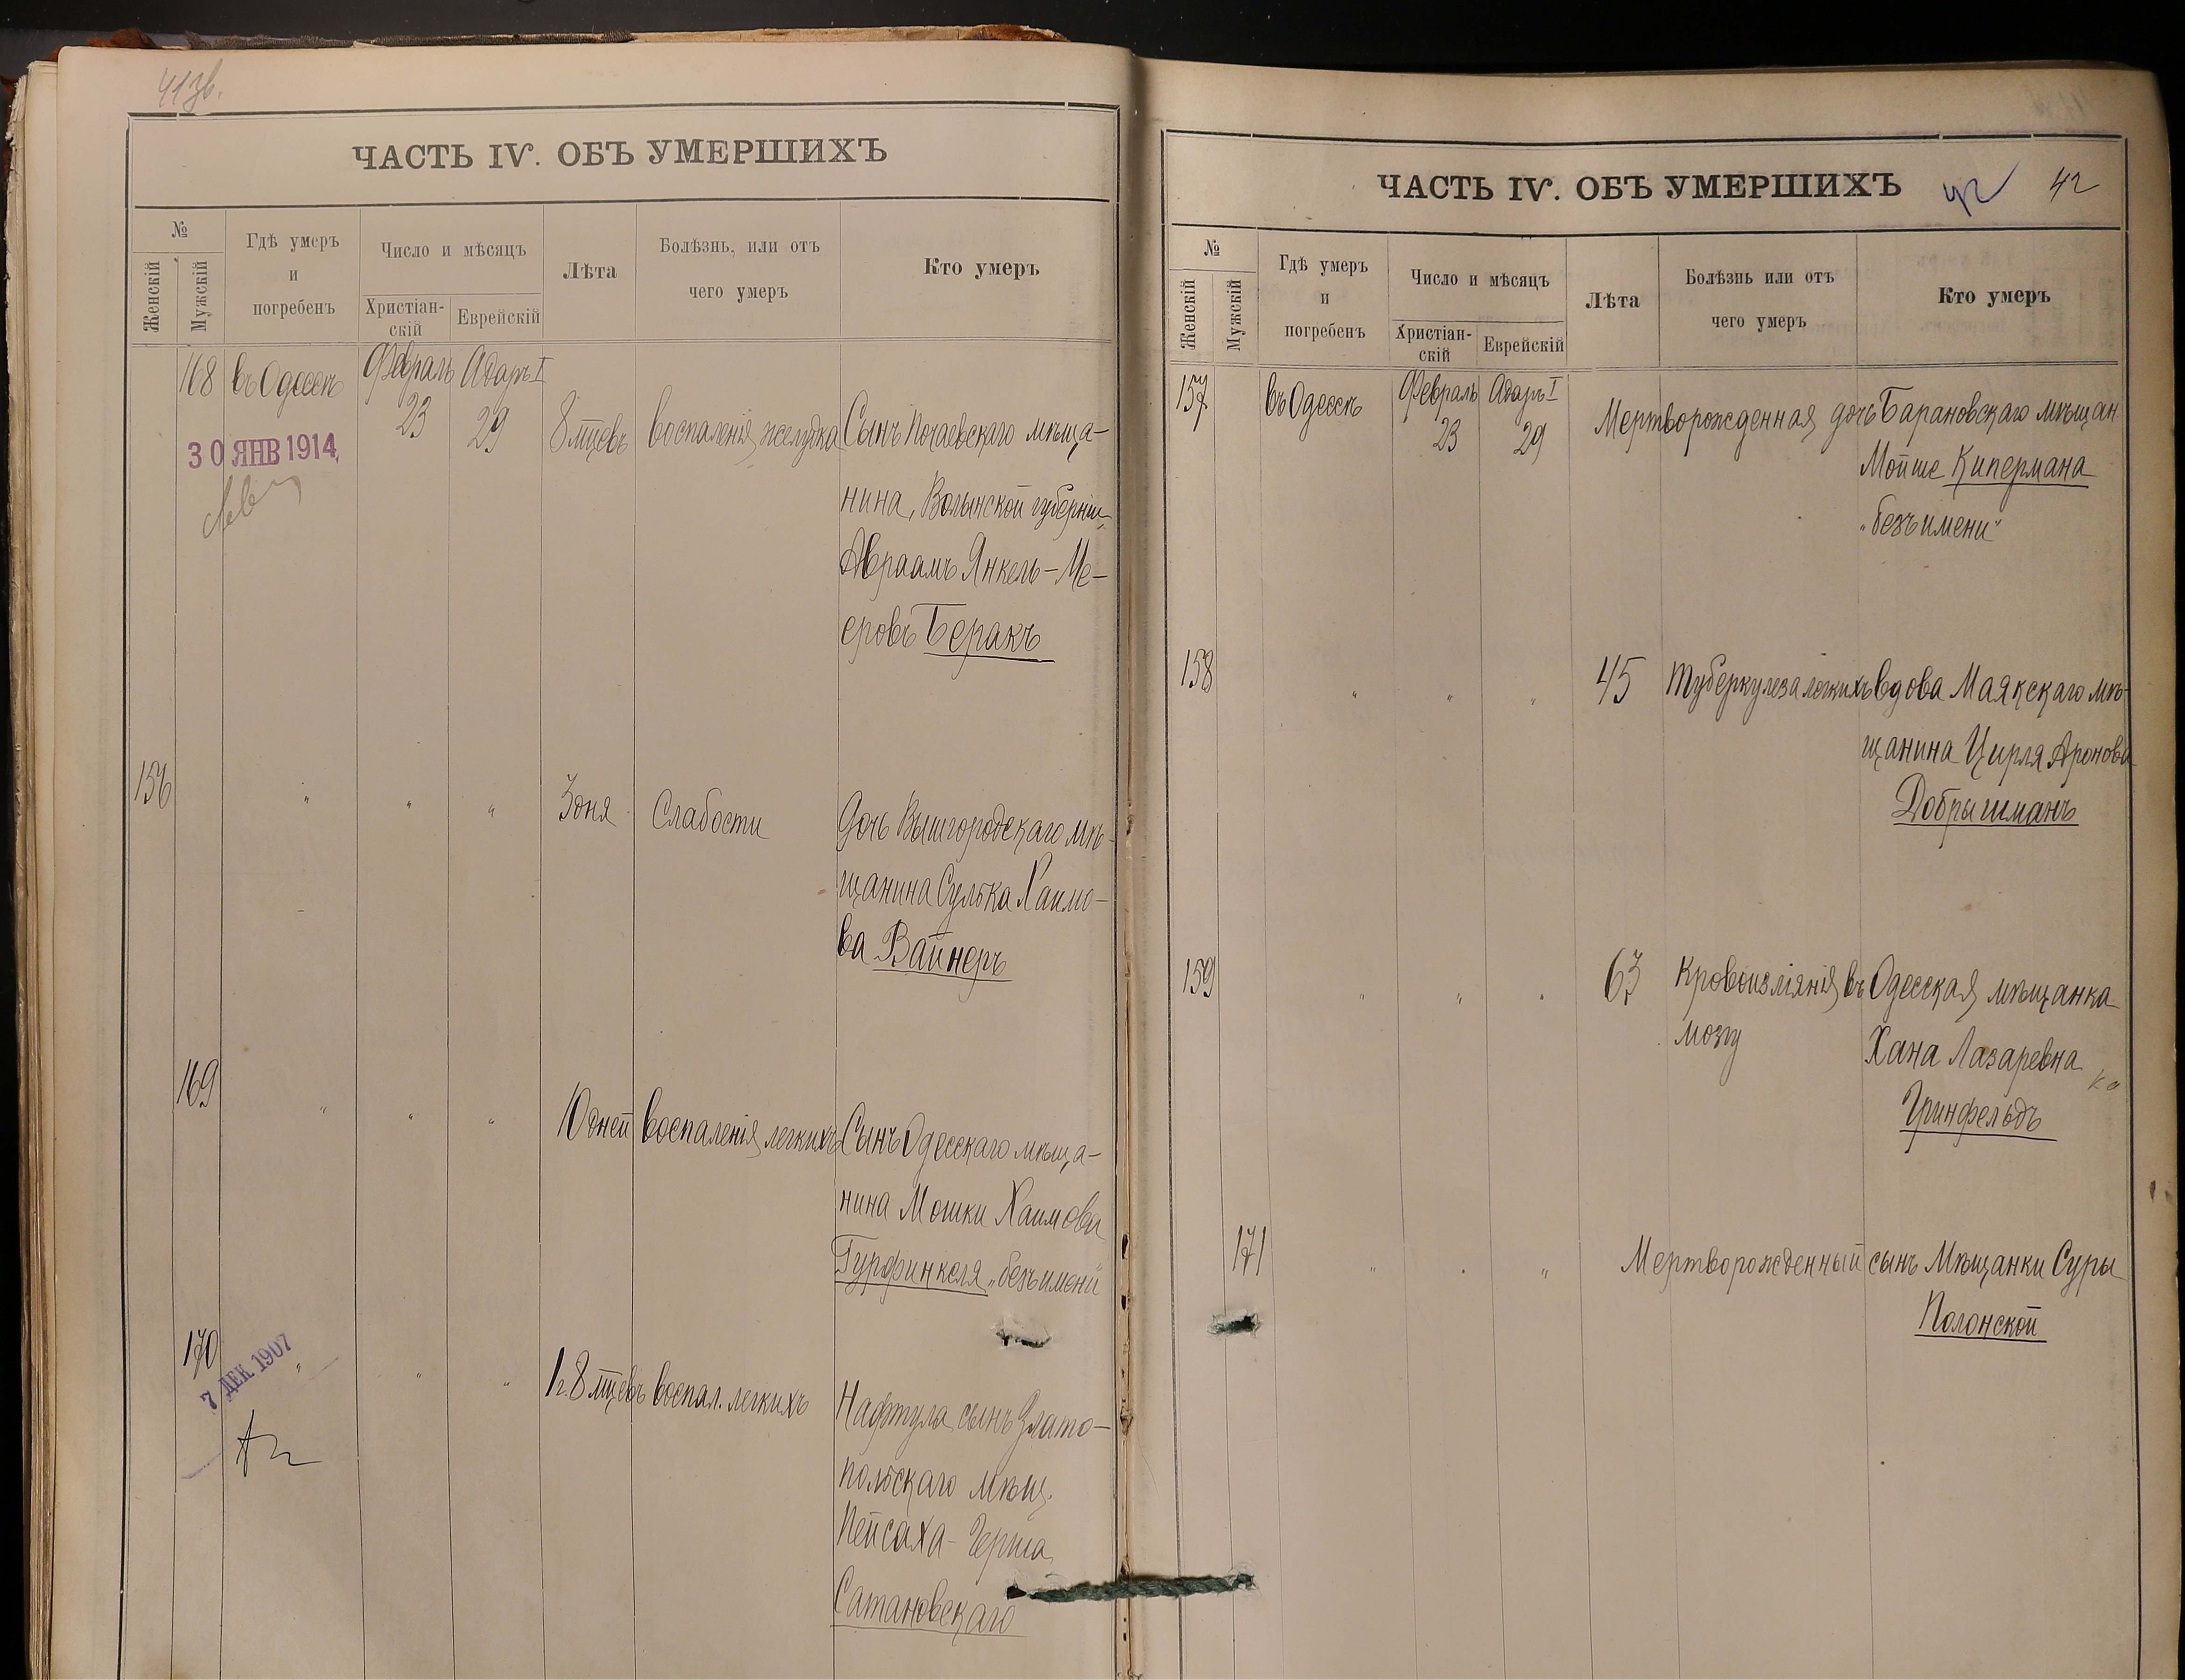 41 зв.
ЧАСТЬ IV. ОБЪ УМЕРШИХЪ
№
Женскій
Мужскій
Гдѣ умеръ
и
погребенъ
Число и мѣсяцъ
Христіан-
скій
Еврейскій
Лѣта
Болѣзнь, или отъ
чего умеръ
Кто умеръ
168 въ Одессѣ Февраль Адаръ I
23 29 8 мцевъ воспаленія желудка Сынъ Почаевскаго мѣща-
30 ЯНВ 1914
нина, Волынской губерніи,
Авраамъ Янкель-Ме-
еровъ Беракъ
156 " " " 3 дня Слабости Дочь Вышгородскаго мѣ-
щанина Сулька Хаимо-
ва Вайнеръ
169 " " " 10 дней воспаленія легкихъ Сынъ Одесскаго мѣща-
нина Мошки Хаимова
Гурфинкеля „безъ имени"
170 " " " 1 г. 8 мцевъ воспал. легкихъ Нафтула сынъ Злато-
7 ДЕК 1907
польскаго мѣщ.
Пейсаха-Герша
Сатановскаго
ЧАСТЬ IV. ОБЪ УМЕРШИХЪ 42 42
№
Женскій
Мужскій
Гдѣ умеръ
и
погребенъ
Число и мѣсяцъ
Христіан-
скій
Еврейскій
Лѣта
Болѣзнь или отъ
чего умеръ
Кто умеръ
157 въ Одессѣ Февраль Адаръ I
23 29 Мертворожденная дочь Барановскаго мѣщан.
Мойше Кипермана
„безъ имени"
158 " " " 45 туберкулеза легкихъ вдова Маякскаго мѣ-
щанина Цирля Аронова
Добрышманъ
159 " " " 63 Кровоизліянія въ Одесская мѣщанка
мозгу Хана Лазаревна
Гринфельдъ
171 " " " Мертворожденный сынъ Мѣщанки Суры
Полонской